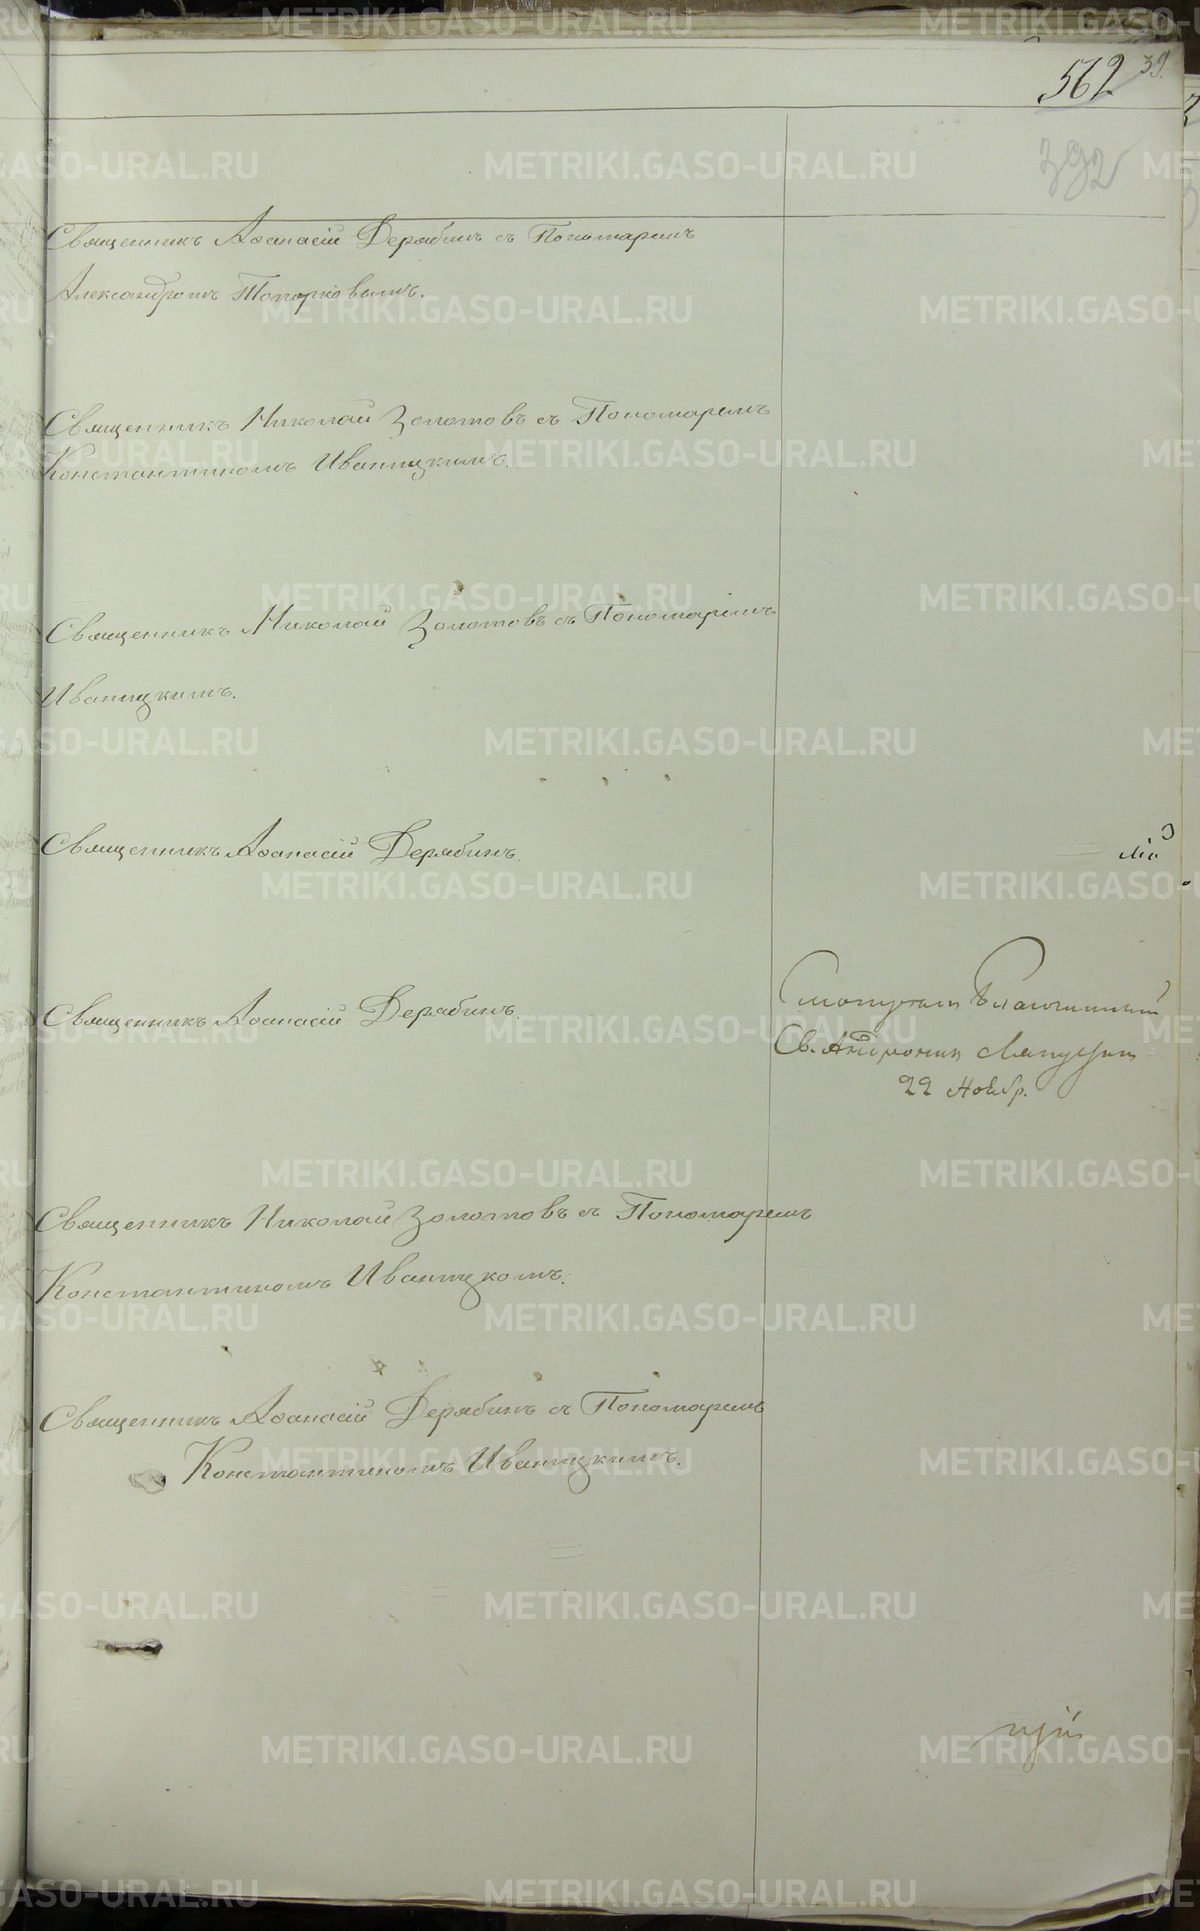 562
39.
392
Священникъ Аѳанасій Дерябинъ съ Пономаремъ
Александромъ Топорковымъ.
Священникъ Николай Золотовъ съ Пономаремъ
Константиномъ Иваницкимъ.
Священникъ Николай Золотовъ съ Пономаремъ
Иваницкимъ.
Священникъ Аѳанасій Дерябинъ.
Священникъ Аѳанасій Дерябинъ.
Св. Андроникъ
22 Ноябр.
Священникъ Николай Золотовъ съ Пономаремъ
Константиномъ Иваницкомъ.
Священникъ Аѳанасій Дерябинъ съ Пономаремъ
Константиномъ Иваницкимъ.
METRIKI.GASO-URAL.RU